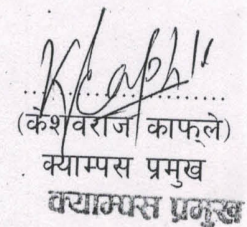 (केशवराज काफ्ले)
क्याम्पस प्रमुख
क्याम्पस प्रमुख